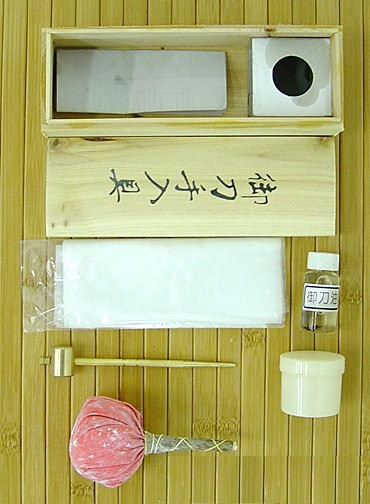 御刀手入具
御刀油